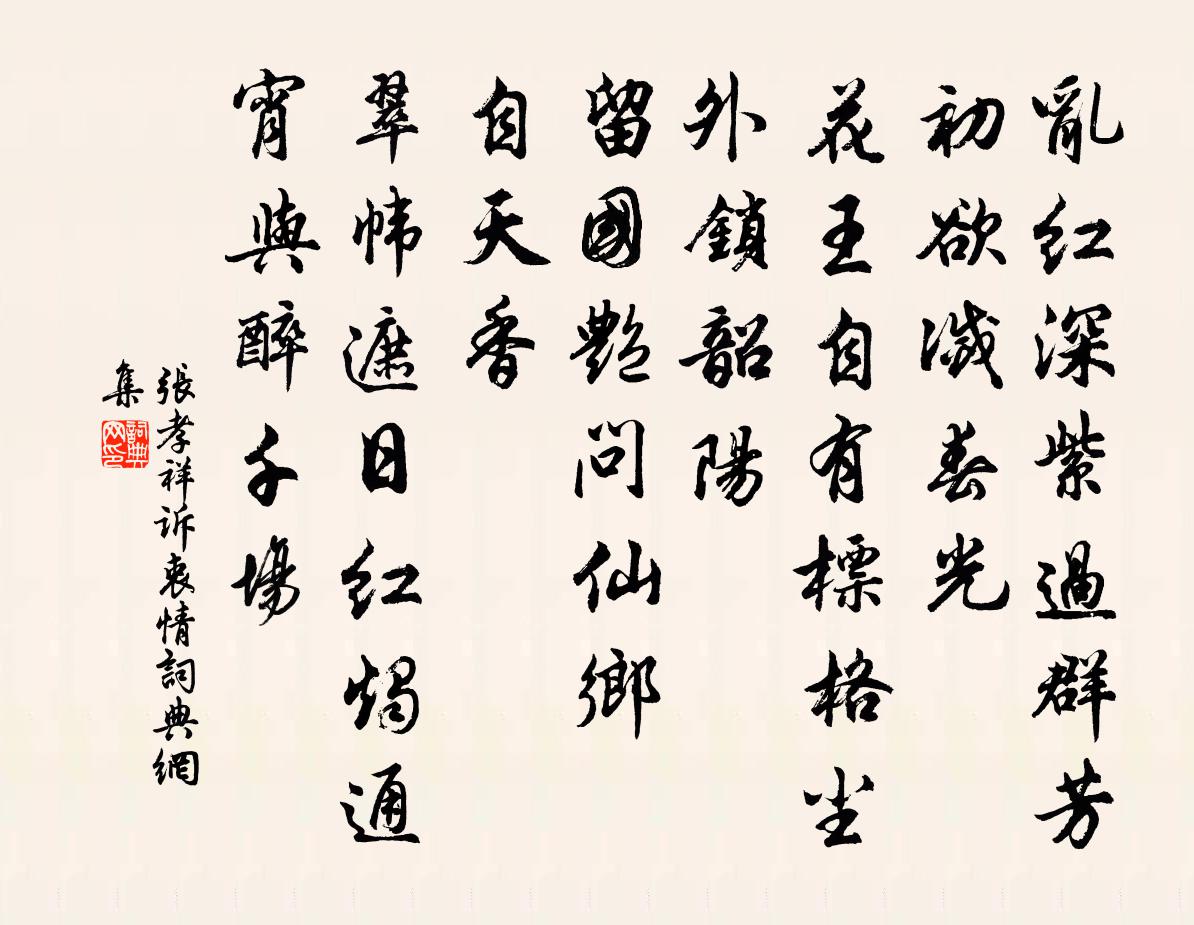 亂紅深紫過群芳
初欲減春光
花王自有標格塵
外鎖韶陽
留國艷問仙鄉
自天香
翠幃遮日紅燭通
宵與醉千場
張孝祥訴衷情詞典網
集
詞典
网印